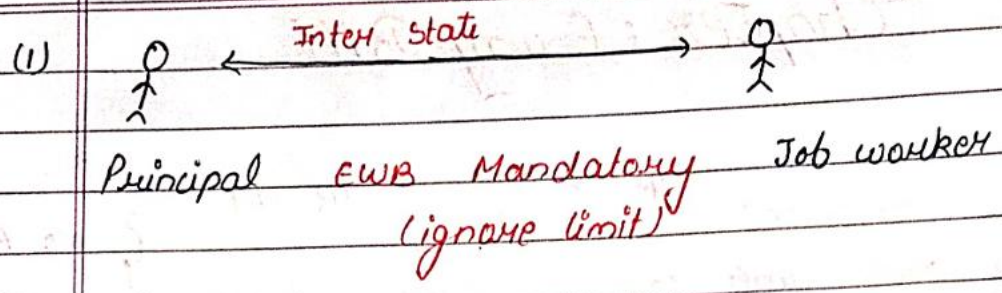 (1) Inter State
Principal EWB Mandatory Job worker
(ignore limit)